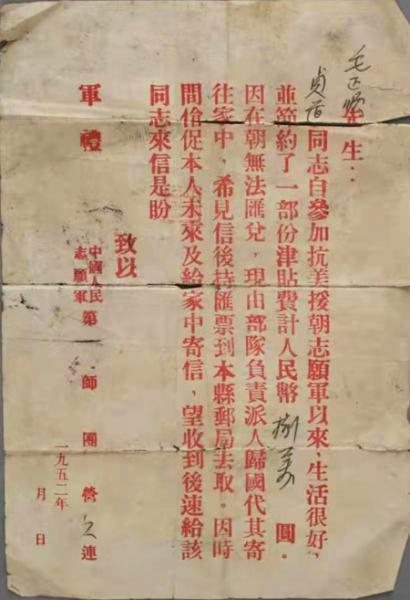 毛正 先生：
貞 同志自參加抗美援朝志願軍以來，生活很好，
並節約了一部份津貼費計人民幣 捌萬 圓。
因在朝無法匯兌，現由部隊負責派人歸國代其寄
往家中，希見信後持匯票到本縣郵局去取。因時
間倉促本人未來及給家中寄信，望收到後速給該
同志來信是盼
致以
軍禮
中國人民志願軍第 師 團 營 連
一九五二年 月 日